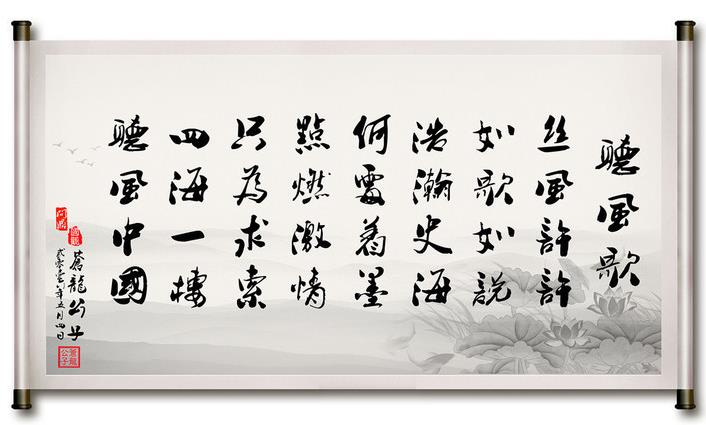 聽風歌
丝風許許
如歌如說
浩瀚史海
何需着墨
點燃激情
只為求索
四海一樓
聽風中國
蒼龍公子
貳零壹六年五月四日
蒼龍公子